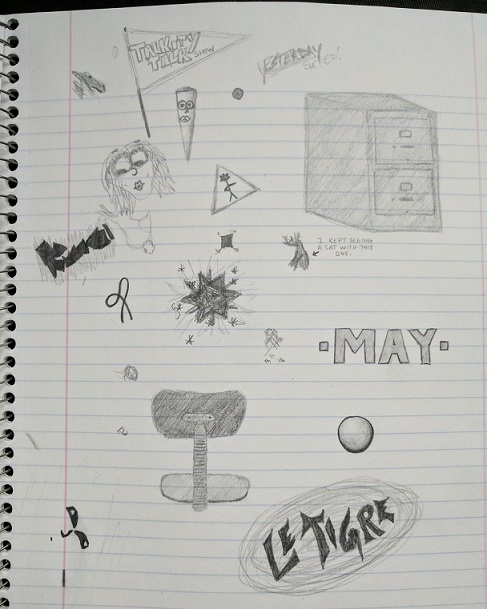 TALKITY
TALK SHOW
YESTERDAY
I KEPT SEEING
A CAT WITH THIS
ONE.
MAY
LE TIGRE